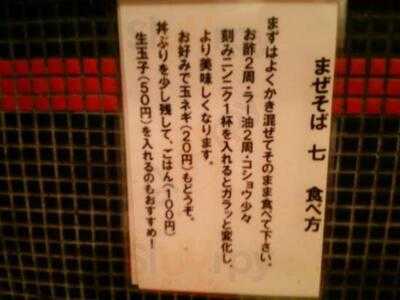 まぜそば 七 食べ方
まずはよくかき混ぜてそのまま食べて下さい。
お酢2周・ラー油2周・コショウ少々
刻みニンニク1杯を入れるとガラッと変化し、
より美味しくなります。
お好みで玉ネギ(20円)もどうぞ。
丼ぶりを少し残して、ごはん(100円)
生玉子(50円)を入れるのもおすすめ！